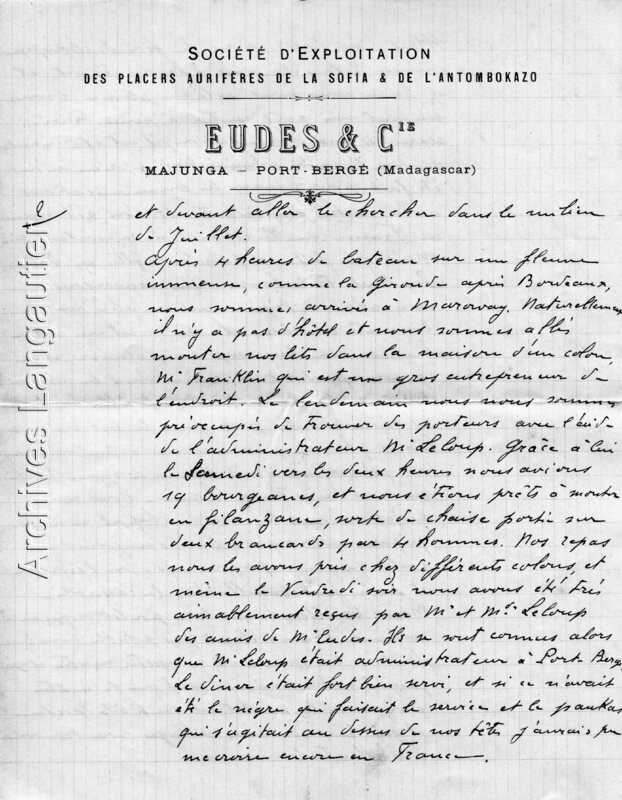 SOCIÉTÉ D'EXPLOITATION
DES PLACERS AURIFÈRES DE LA SOFIA & DE L'ANTOMBOKAZO
EUDES & CIE
MAJUNGA — PORT-BERGÉ (Madagascar)
et devant aller le chercher dans le milieu
de Juillet.
Après 4 heures de bateau sur un fleuve
immense, comme la Gironde après Bordeaux,
nous sommes arrivés à Marovay. Naturellement
il n'y a pas d'hôtel et nous sommes allés
monter nos lits dans la maison d'un colon,
Mr Franklin qui est un gros entrepreneur de
l'endroit. Le lendemain nous nous sommes
préoccupés de trouver des porteurs avec l'aide
de l'administrateur Mr Leloup. Grâce à lui
le Samedi vers les deux heures nous avions
19 bourgeanes, et nous étions prêts à monter
en filanzane, sorte de chaise portée sur
deux brancards par 4 hommes. Nos repas
nous les avons pris chez différents colons, et
même le Vendredi soir nous avons été très
aimablement reçus par Mr et Me Leloup
des amis de Mr Eudes. Ils se sont connus alors
que Mr Leloup était administrateur à Port-Bergé
Le dîner était fort bien servi, et si ce n'avait
été le nègre qui faisait le service et le pankas
qui s'agitait au dessus de nos têtes j'aurais pu
me croire encore en France.
Archives Langautier